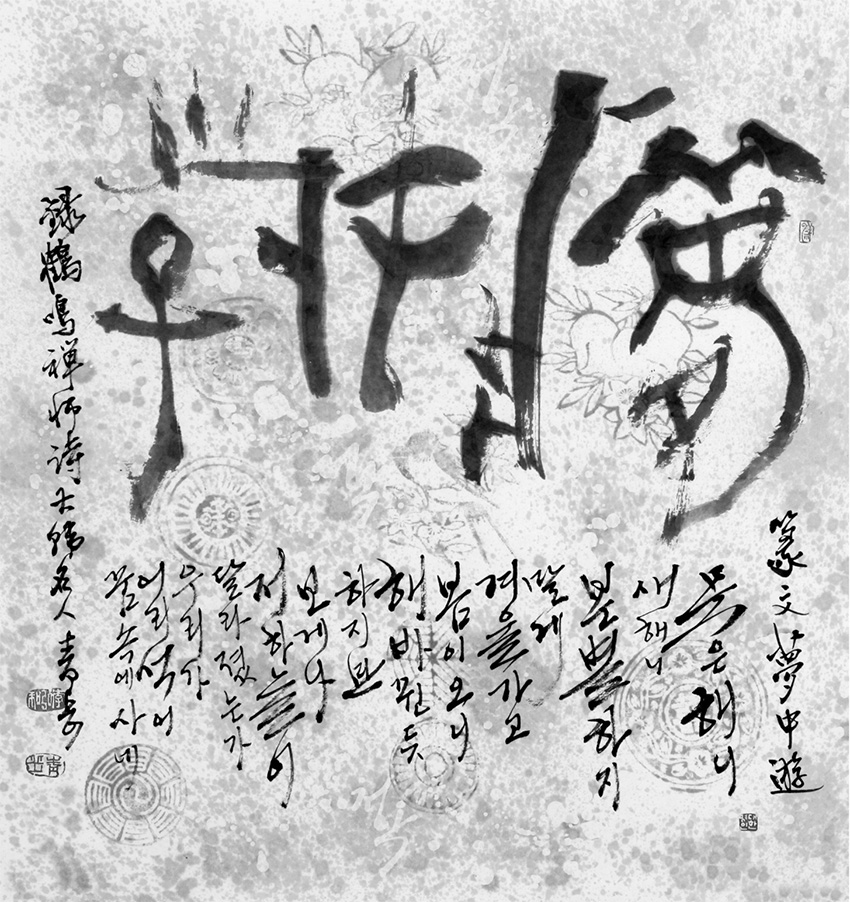 夢中遊
篆文夢中遊
묵은해니
새해니
분별하지
말게
겨울가고
봄이오니
해바뀐듯
하지만
보게나
저하늘이
달라졌는가
우리가
어리석어
꿈속에사네
録鶴鳴禅师诗大韓名人青